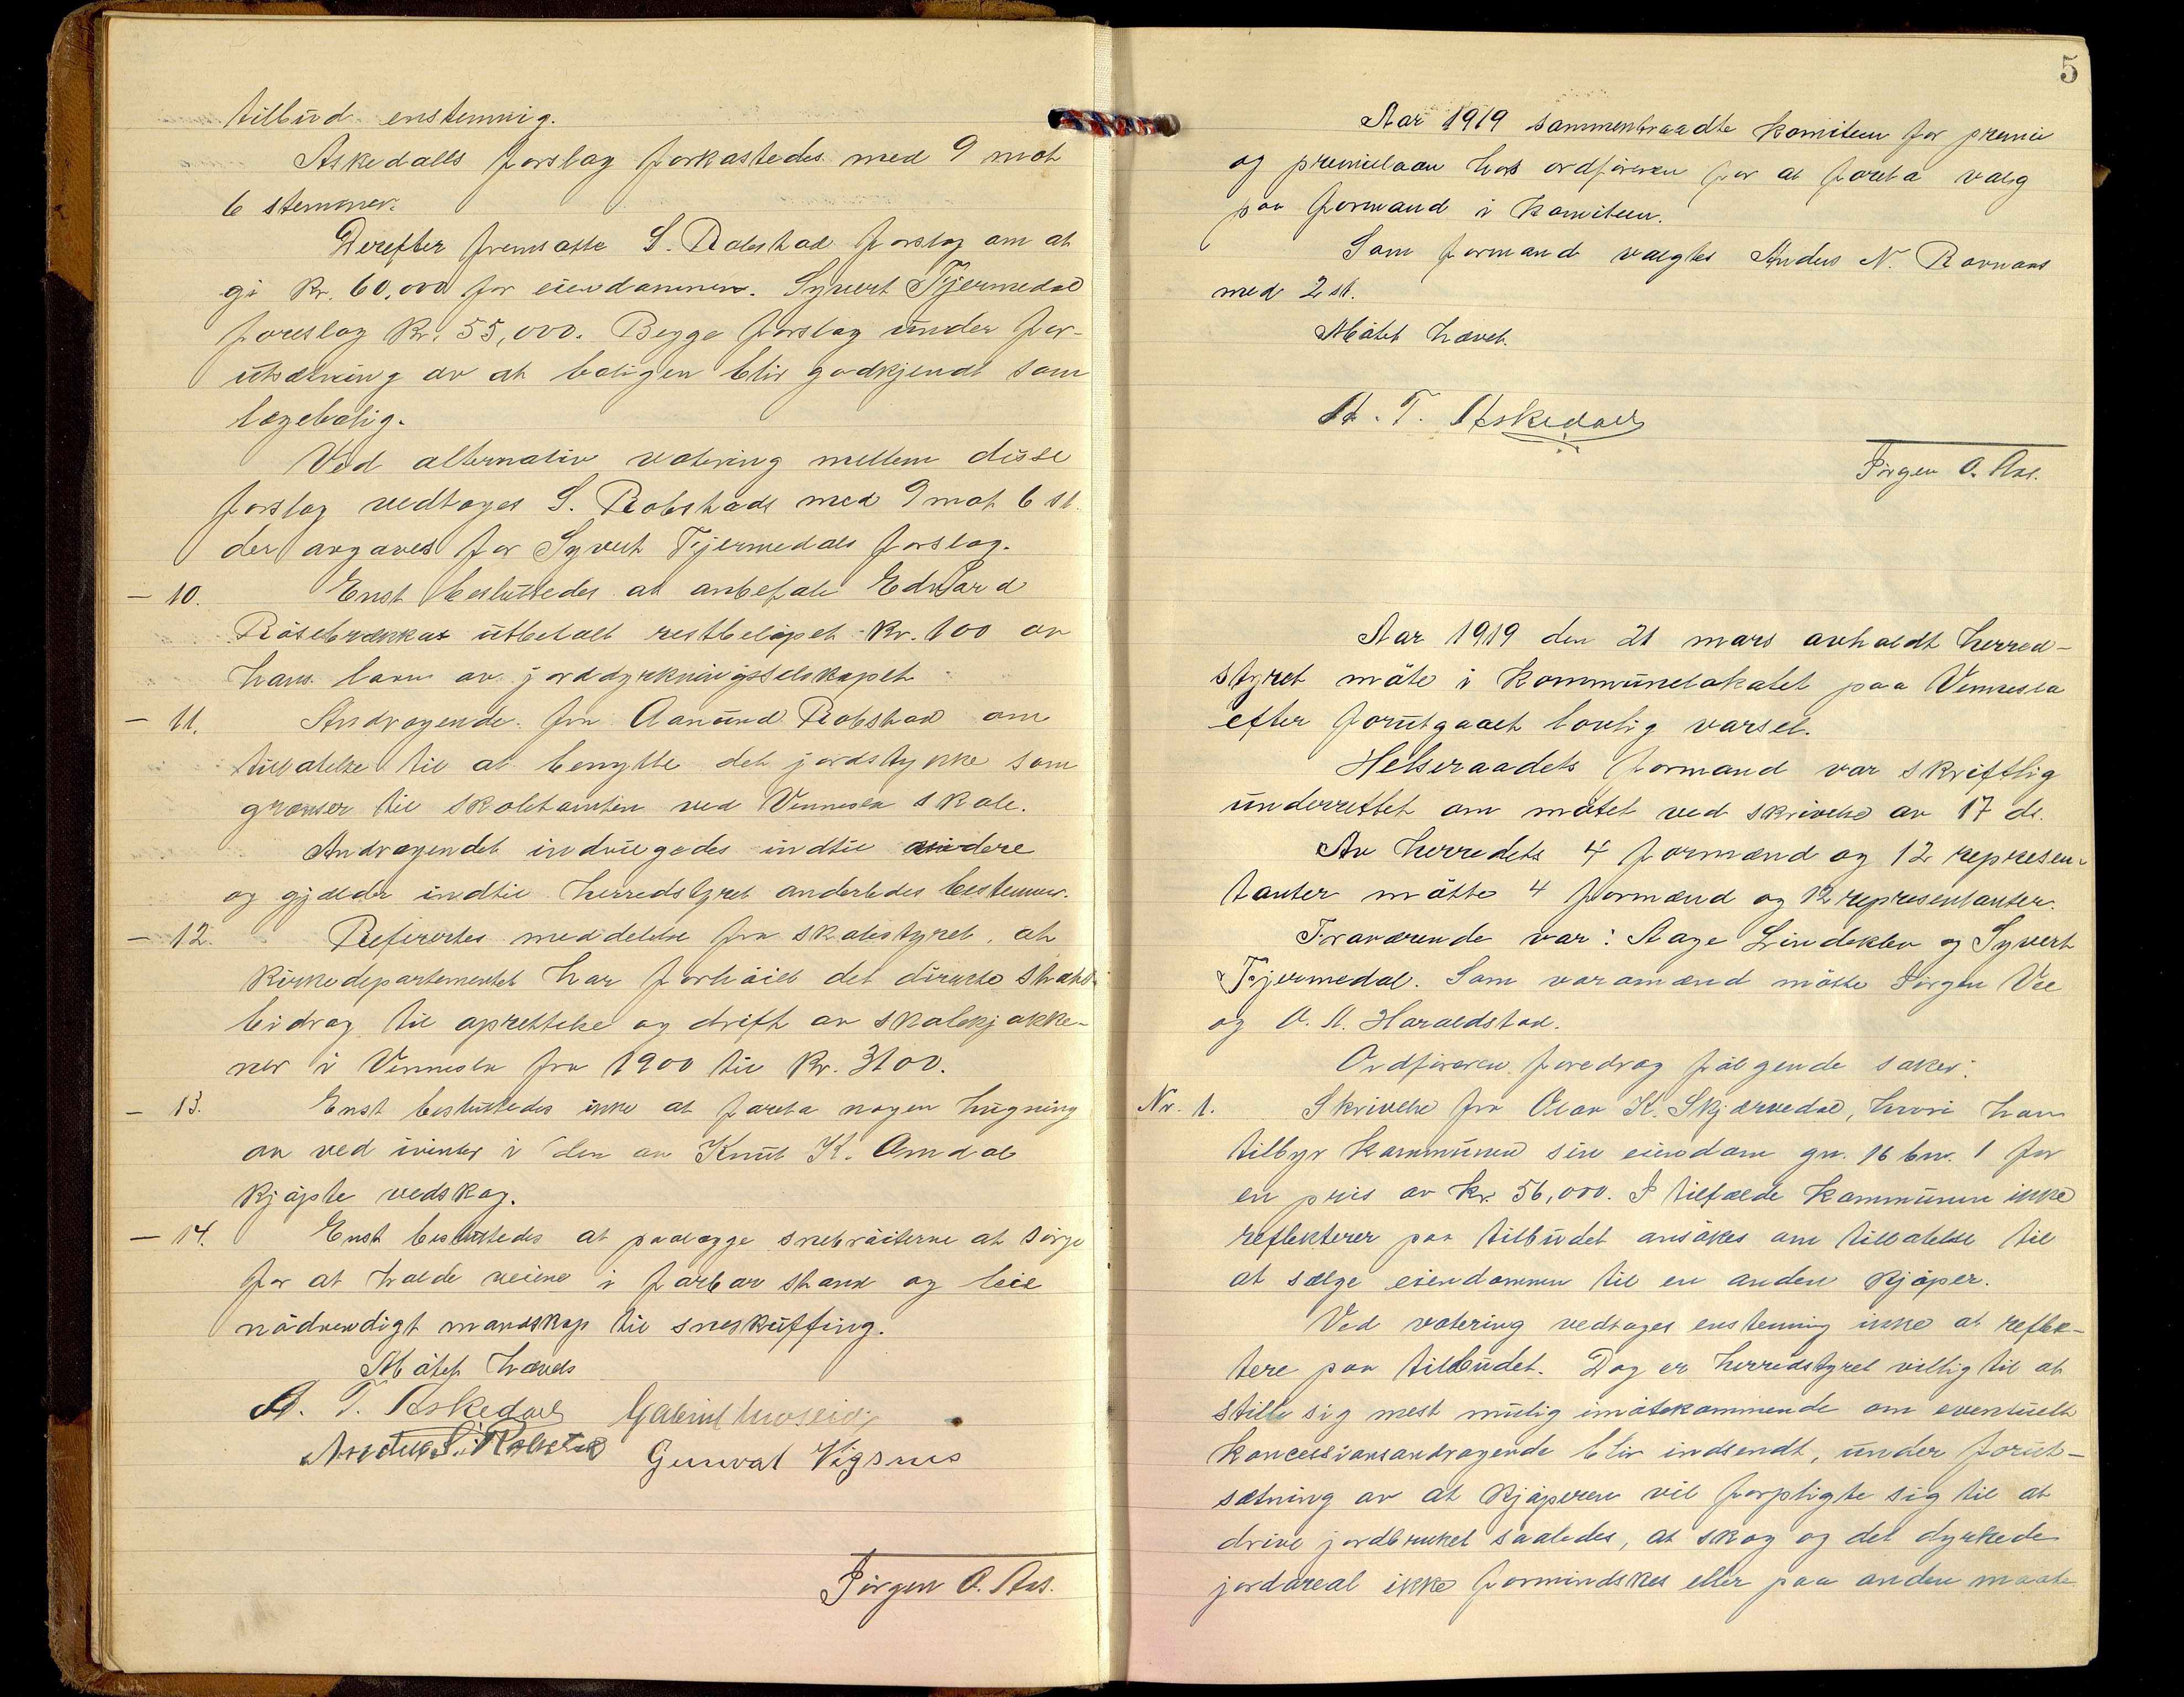 tilbud enstemmig.
Askedalls forslag forkastedes med 9 mot
6 stemmer.
Derefter fremsatte S. Robstad forslag om at
gi kr. 60,000 for eiendommen. Syvert Tjermedal
foreslog kr. 55,000. Begge forslag under for-
utsætning av at boligen blir godkjendt som
lægebolig.
Ved alternativ votering mellem disse
forslag vedtoges S. Robstads med 9 mot 6 st.
der avgaves for Syvert Tjermedals forslag.
— 10. Enst besluttedes at anbefale Edvard
Røsebrækkas utbetalt restbeløpet kr. 100 av
hans laan av jorddyrkningsselskapet
— 11. Andragende fra Aanund Robstad om
tillatelse til at benytte det jordstykke som
grænser til skoletomten ved Vennesla skole.
Andragendet indvilgedes indtil videre
og gjælder indtil herredstyret anderledes bestemmer.
— 12. Refirertes meddelelse fra skolestyret, at
kirkedepartementet har forhøiet det dirækte stats-
bidrag til oprettelse og drift av skolekjøkke-
ner i Vennesla fra 1900 til kr. 3100.
— 13. Enst besluttedes ikke at foreta nogen hugning
av ved ivinter i den av Knut K. Omdal
kjøpte vedskog.
— 14. Enst besluttedes at paalægge snebrøiterne at sørge
for at holde veiene i farbar stand og leie
nødvendigt mandskap til sneskuffing.
Møtet hævds
A. T. Askedal Gabriel
Robstad Gunvald Vigsnes
Jørgen O. Aas.
5
Aar 1919 sammentraadte komiteen for premie
og premielaan hos ordføreren for at foreta valg
paa formand i komiteen.
Som formand valgtes Anders N. Ravnaas
med 2 st.
Møtet hævet.
A. T. Askedal
Jørgen O. Aas.
Aar 1919 den 21 mars avholdt herred-
styret møte i kommunelokalet paa Vennesla
efter forutgaaet lovlig varsel.
Helseraadets formand var skriftlig
underrettet om møtet ved skrivelse av 17 ds.
Av herredets 4 formænd og 12 represen-
tanter møtte 4 formænd og 12 representanter.
Fraværende var: Aage Lindeklev og Syvert
Tjermedal. Som varamænd møtte Jørgen Vee
og O. A. Haraldstad.
Ordføreren foredrog følgende saker:
Nr. 1. Skrivelse fra Olav K. Skjærvedal, hvori han
tilbyr kommunen sin eiendom gn. 16 bn. 1 for
en pris av kr. 56,000. I tilfælde kommunen ikke
reflekterer paa tilbudet ansøkes om tillatelse til
at sælge eiendommen til en anden kjøper.
Ved votering vedtoges enstemmig ikke at reflek-
tere paa tilbudet. Dog er herredstyret villig til at
stille sig mest mulig imøtekommende om eventuelt
koncessionsandragende blir indsendt, under forut-
sætning av at kjøperen vil forpligte sig til at
drive jordbruket saaledes, at skog og det dyrkede
jordareal ikke formindskes eller paa anden maate